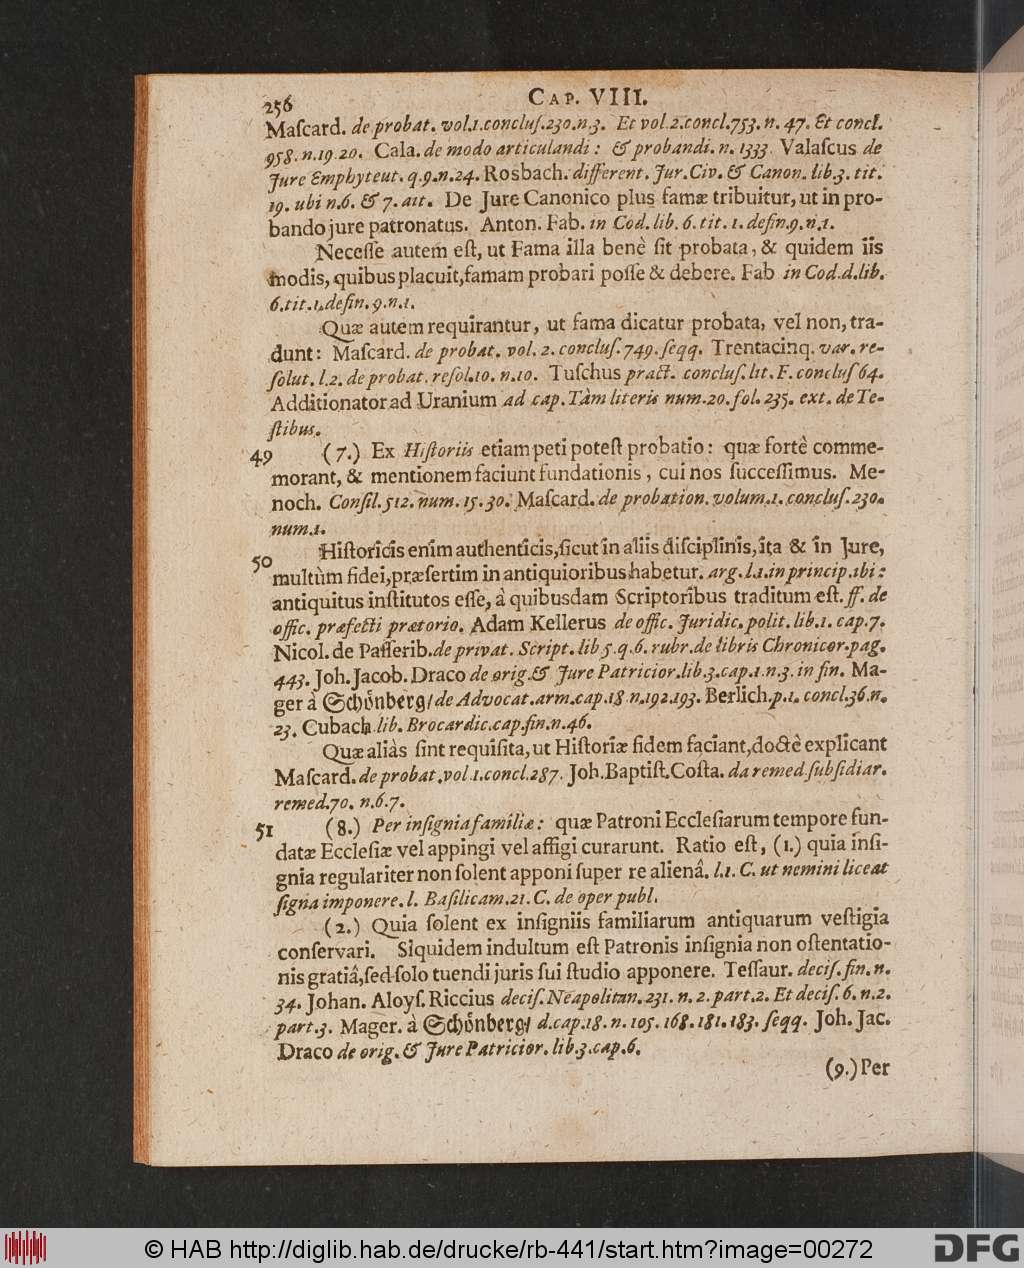 256
CAP. VIII.
Maſcard. de probat. vol.1.concluſ.230.n.3. Et vol.2.concl.753. n. 47. Et concl.
958. n.19.20. Cala. de modo articulandi: & probandi. n. 1333. Valaſcus de
Jure Emphyteut. q.9.n.24. Rosbach. different. Jur. Civ. & Canon. lib.3. tit.
19. ubi n.6. & 7. ait. De Jure Canonico plus famæ tribuitur, ut in pro-
bando jure patronatus. Anton. Fab. in Cod. lib. 6. tit. 1. defin.9.n.1.
Neceſſe autem eſt, ut Fama illa benè ſit probata, & quidem iis
modis, quibus placuit, famam probari poſſe & debere. Fab in Cod.d.lib.
6.tit.1.defin.9.n.1.
Quæ autem requirantur, ut fama dicatur probata, vel non, tra-
dunt: Maſcard. de probat. vol. 2. concluſ. 749. ſeqq. Trentacinq. var. re-
ſolut. l.2. de probat. reſol.10. n.10. Tuſchus pract. concluſ. lit. F. concluſ 64.
Additionator ad Uranium ad cap. Tàm literis num.20. fol. 235. ext. de Te-
ſtibus.
49 (7.) Ex Hiſtoriis etiam peti poteſt probatio: quæ fortè comme-
morant, & mentionem faciunt fundationis, cui nos ſucceſſimus. Me-
noch. Conſil. 512. num. 15. 30. Maſcard. de probation. volum.1. concluſ. 230.
num.1.
50 Hiſtoricis enim authenticis, ſicut in aliis diſciplinis, ita & in Jure,
multùm fidei, præſertim in antiquioribus habetur. arg. l.1. in princip. ibi:
antiquitus inſtitutos eſſe, à quibusdam Scriptoribus traditum eſt. ff. de
offic. præfecti prætorio. Adam Kellerus de offic. Juridic. polit. lib.1. cap.7.
Nicol. de Paſſerib. de privat. Script. lib 5. q.6. rubr. de libris Chronicor. pag.
443. Joh. Jacob. Draco de orig. & Jure Patricior. lib.3.cap.1.n.3. in fin. Ma-
ger à Schönberg/ de Advocat. arm. cap.18. n.192.193. Berlich. p.1. concl.36.n.
23. Cubach lib. Brocardic. cap. fin. n.46.
Quæ aliàs ſint requiſita, ut Hiſtoriæ fidem faciant, doctè explicant
Maſcard. de probat. vol.1.concl.287. Joh. Baptiſt. Coſta. da remed ſubſidiar.
remed.70. n.6.7.
51 (8.) Per inſignia familiæ: quæ Patroni Eccleſiarum tempore fun-
datæ Eccleſiæ vel appingi vel affigi curarunt. Ratio eſt, (1.) quia inſi-
gnia regulariter non ſolent apponi ſuper re alienâ. l.1. C. ut nemini liceat
ſigna imponere. l. Baſilicam. 21. C. de oper publ.
(2.) Quia ſolent ex inſigniis familiarum antiquarum veſtigia
conſervari. Siquidem indultum eſt Patronis inſignia non oſtentatio-
nis gratiâ, ſed ſolo tuendi juris ſui ſtudio apponere. Teſſaur. deciſ. fin. n.
34. Johan. Aloyſ. Riccius deciſ. Neapolitan. 231. n. 2. part.2. Et deciſ. 6. n.2.
part.3. Mager. à Schönberg/ d.cap.18. n. 105. 168. 181. 183. ſeqq. Joh. Jac.
Draco de orig. & Jure Patricior. lib.3.cap.6.
(9.) Per
© HAB http://diglib.hab.de/drucke/rb-441/start.htm?image=00272
DFG